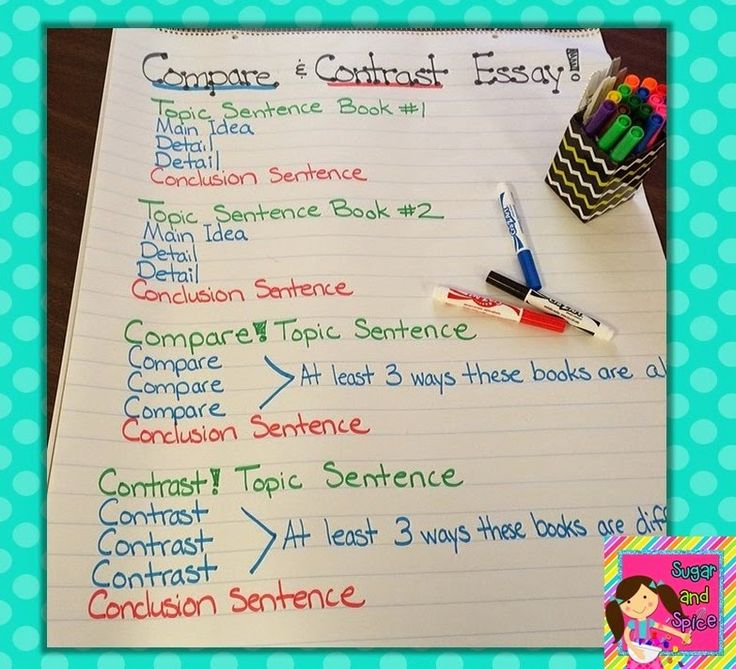 Compare & Contrast Essay!
Topic Sentence Book #1
Main Idea
Detail
Detail
Conclusion Sentence
Topic Sentence Book #2
Main Idea
Detail
Detail
Conclusion Sentence
Compare! Topic Sentence
Compare
Compare
Compare
At least 3 ways these books are al
Conclusion Sentence
Contrast! Topic Sentence
Contrast
Contrast
Contrast
At least 3 ways these books are diff
Conclusion Sentence
Sugar
and
Spice